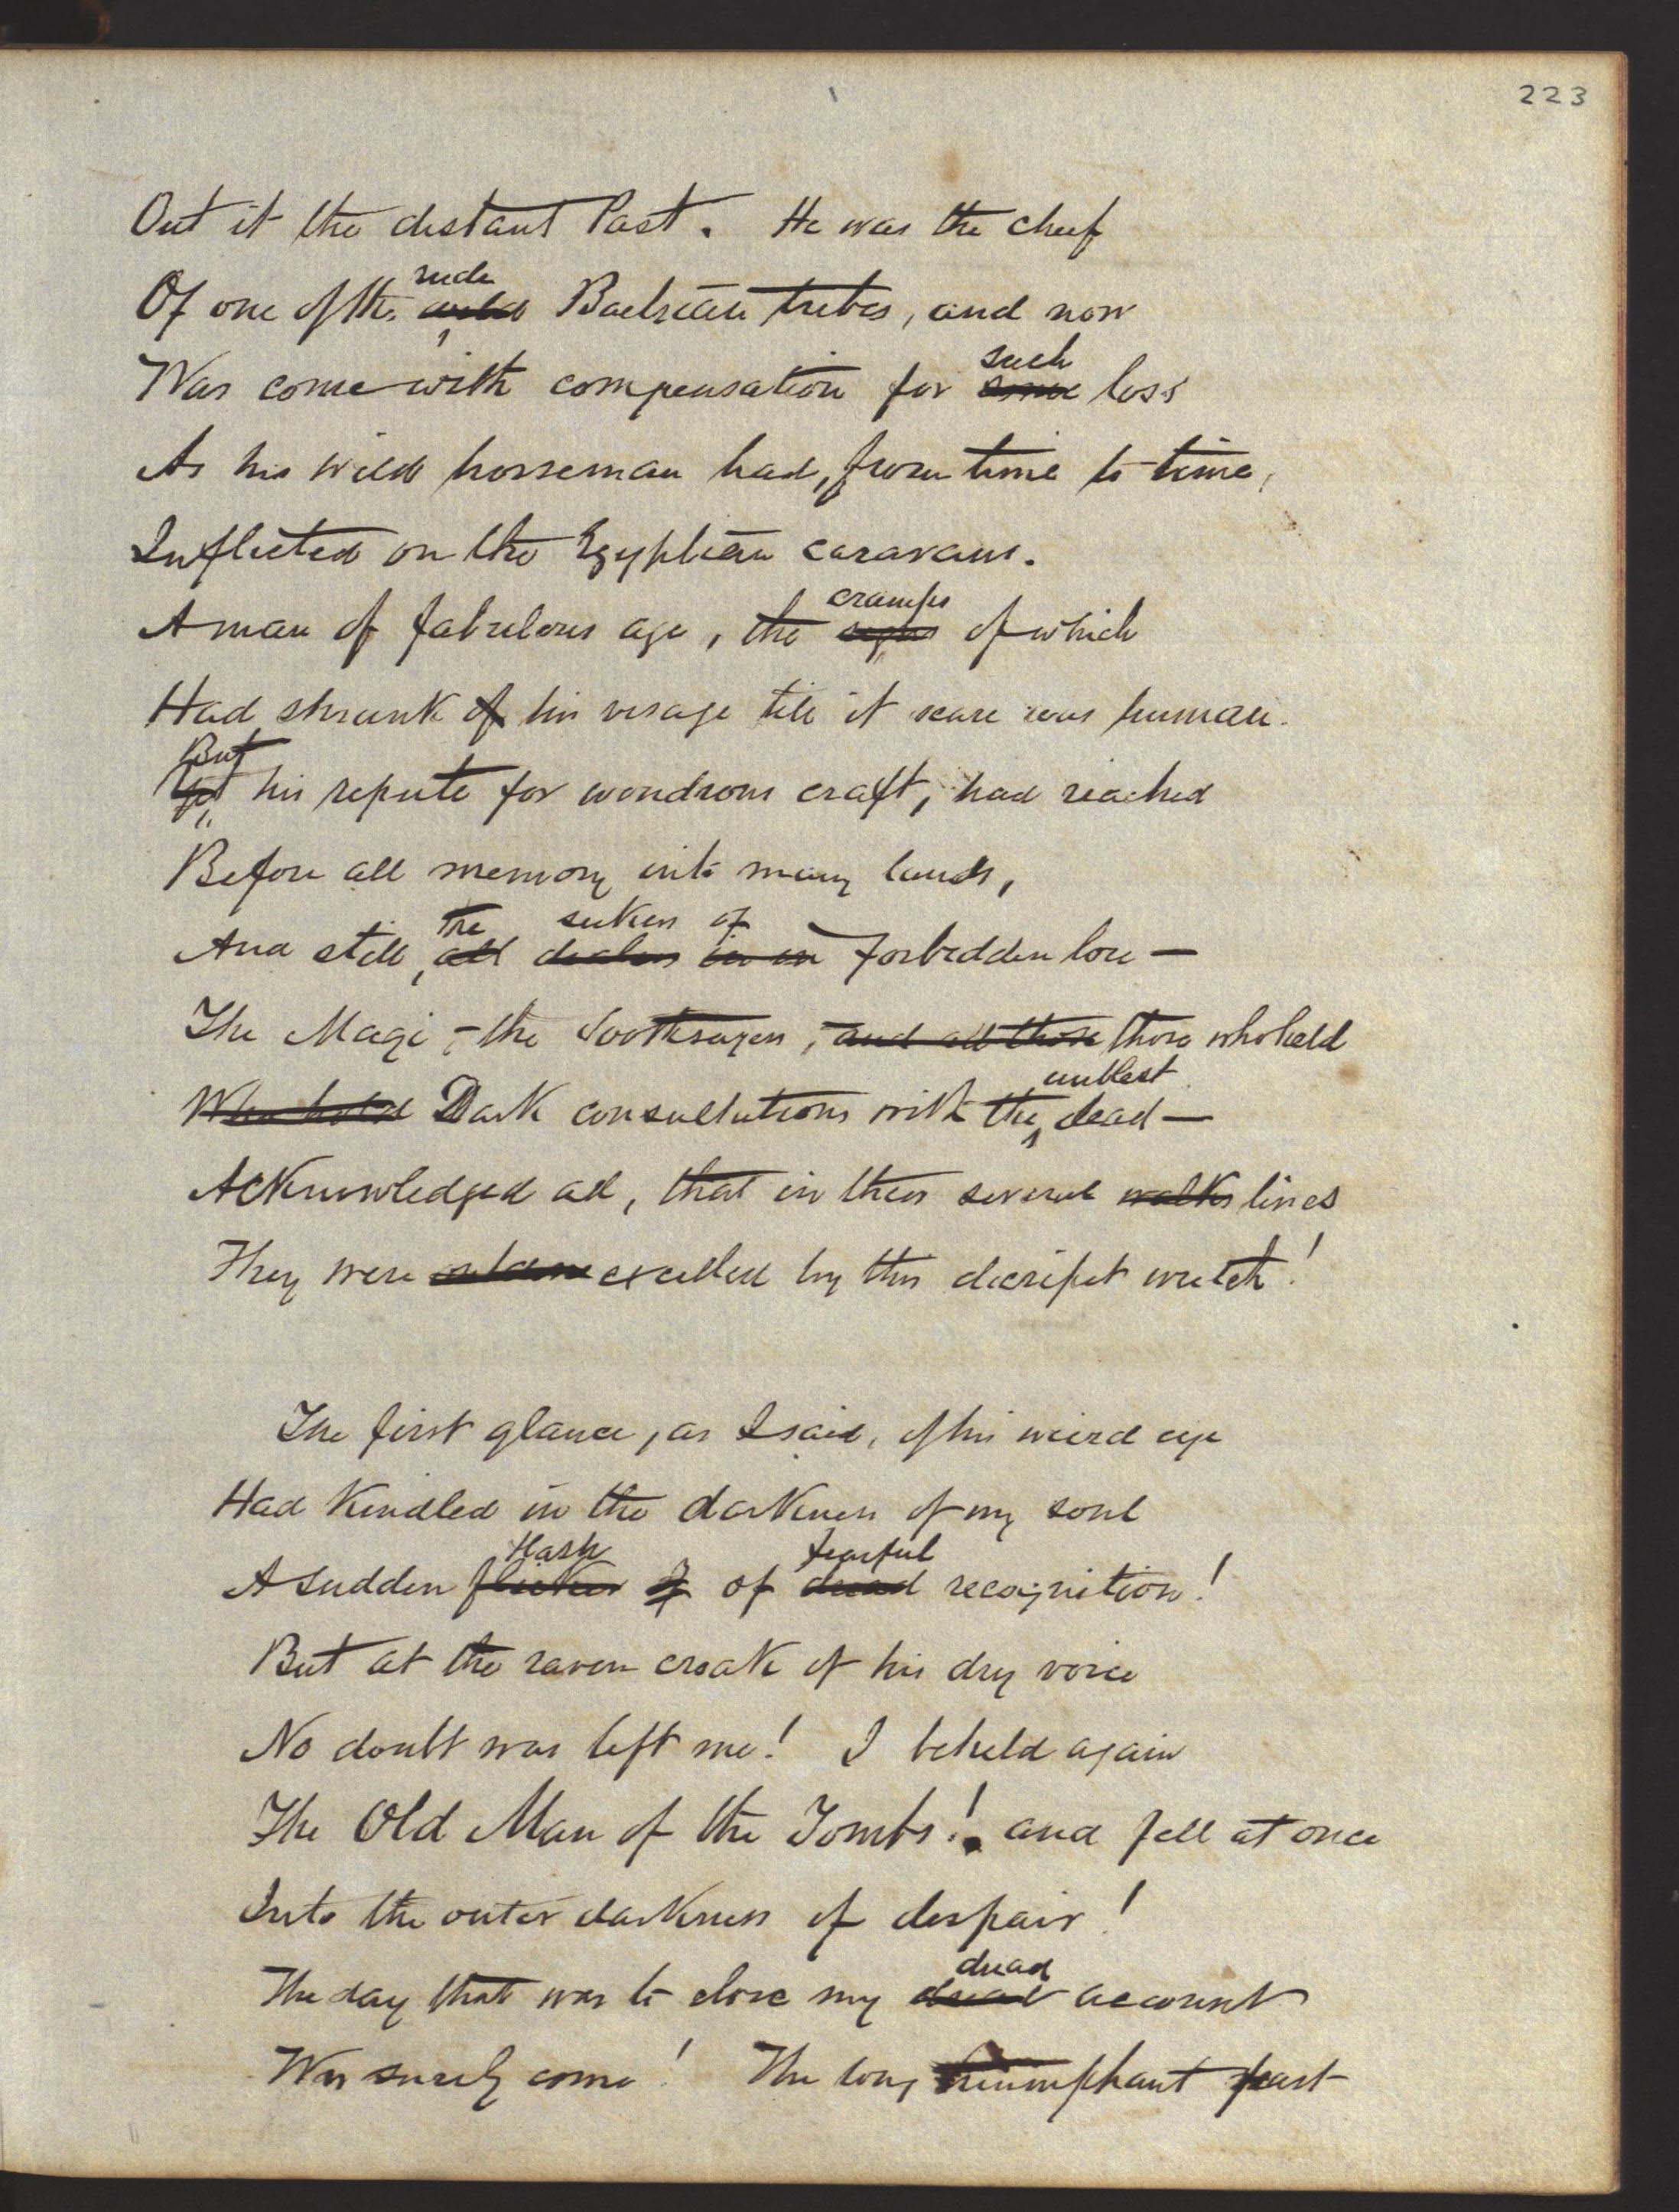 223
Out it the distant Past. He was the chief
rude
Of one of the wild Bactrian tribes, and now
such
Was come with compensation for some loss
As his wild horseman had, from time to time,
Inflicted on the Egyptian caravans.
cramps
A man of fabulous age, the signs of which
Had shrunk of his visage till it scare was human.
But
Yet his repute for wondrous craft, had reached
Before all memory into many lands,
The seekers of
And still, all dealers in Forbidden lore —
The Magi, – the Soothsayers, and all those those who held
unblest
Who hold Dark consultations with the dead —
Acknowledged all, that in their several walks lines
They were excelled by this decripit wretch!
The first glance, as I said, of his weird eye
Had Kindled in the darkness of my soul
flash fearful
A sudden flicker of of dread recognition!
But at the raven croak of his dry voice
No doubt was left me! I beheld again
The Old Man of the Tombs! and fell at once
Into the outer darkness of despair!
dread
The day that was to close my account
Was surely come! The long triumphant past